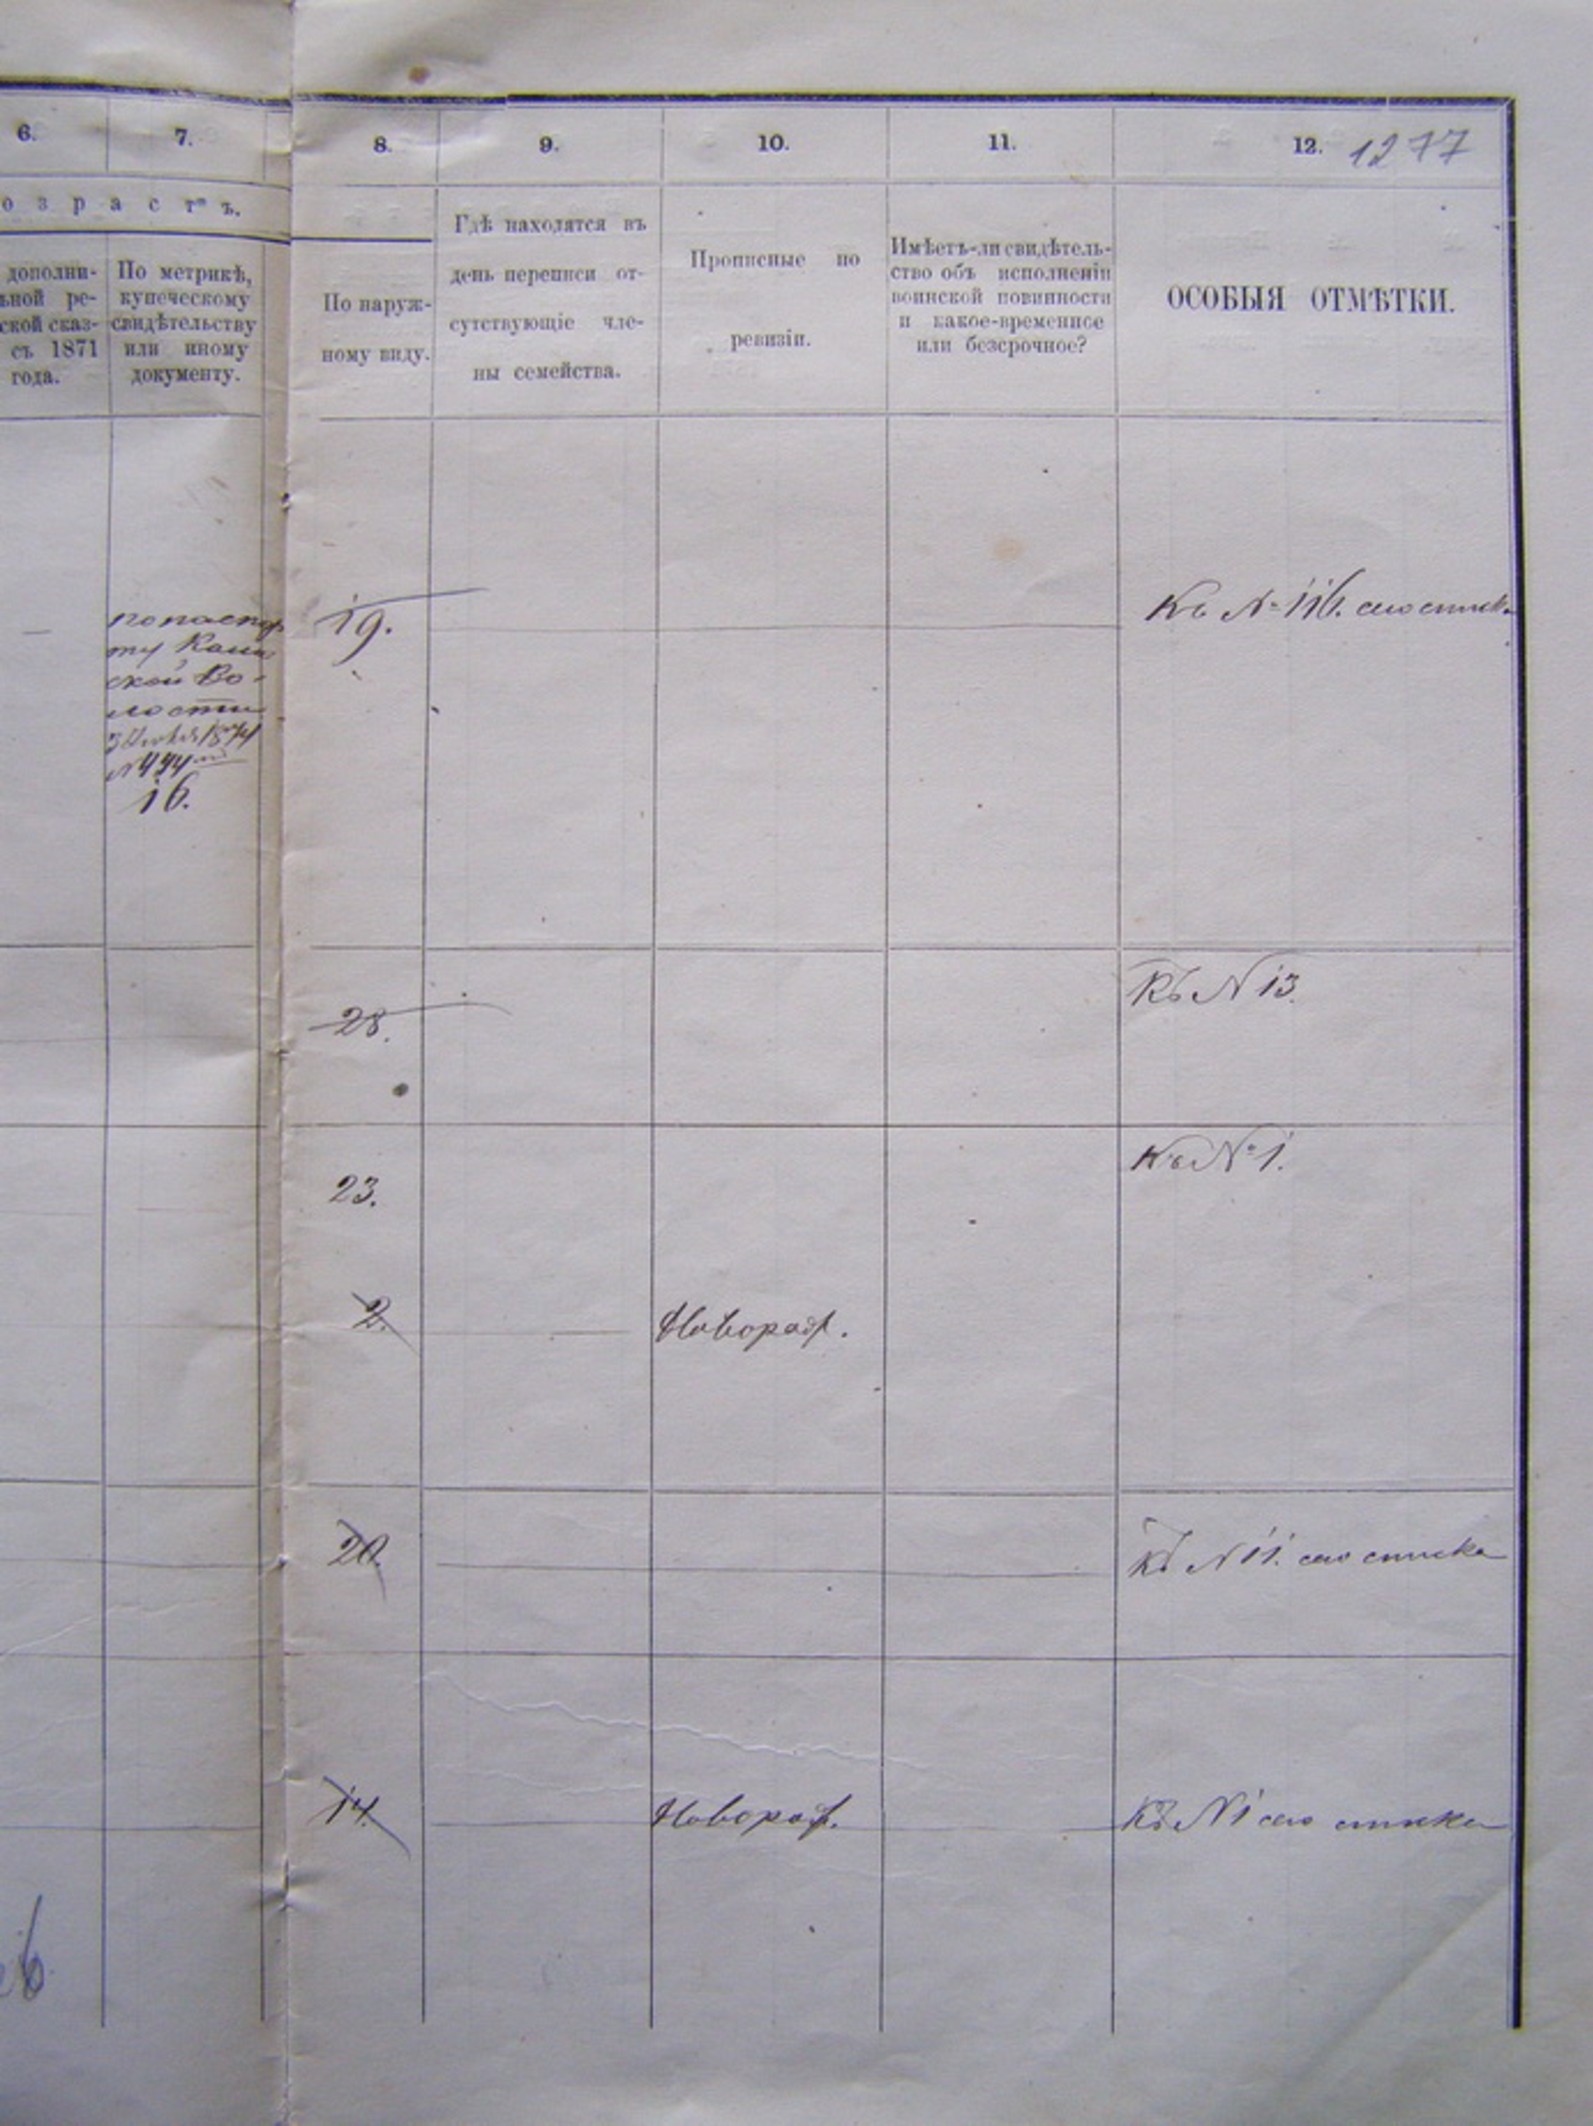 6. 7. 8. 9. 10. 11. 12. 1277
озрастъ.
дополни-
ьной ре-
ской сказ-
съ 1871
года.
По метрикѣ,
купеческому
свидѣтельству
или иному
документу.
По наруж-
ному виду.
Гдѣ находятся въ
день переписи от-
сутствующіе чле-
ны семейства.
Прописные по
ревизіи.
Имѣетъ-ли свидѣтель-
ство объ исполненіи
воинской повинности
и какое-временное
или безсрочное?
ОСОБЫЯ ОТМѢТКИ.
—
по паспор
ту
ской Во-
лости
1874
16.
19.
Къ № 116. сего списка
28.
Къ N 13.
23.
Къ № 1.
2.
—
Новорож.
20.
Къ N 11. сего списка
14.
Новорож.
Къ N 1 сего списка